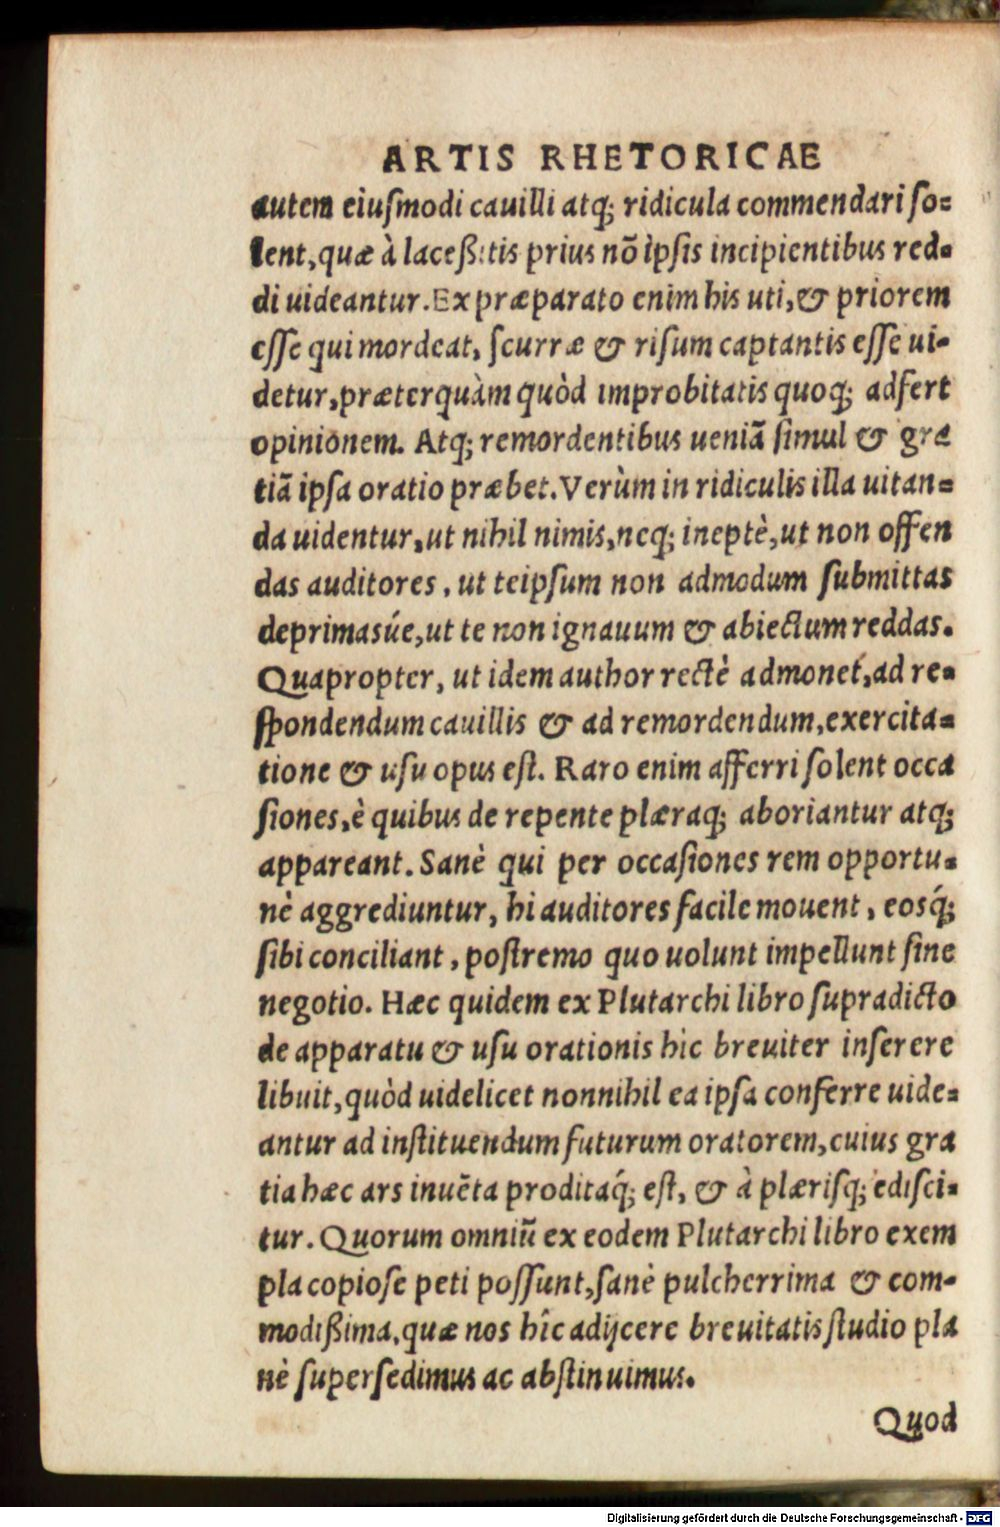 ARTIS RHETORICAE
autem eiuſmodi cauilli atq; ridicula commendari ſo-
lent, quæ à laceßitis prius nõ ipſis incipientibus red-
di uideantur. Ex præparato enim his uti, & priorem
eſſe qui mordeat, ſcurræ & riſum captantis eſſe ui-
detur, præterquàm quòd improbitatis quoq; adfert
opinionem. Atq; remordentibus ueniã ſimul & gra
tiã ipſa oratio præbet. Verùm in ridiculis illa uitan-
da uidentur, ut nihil nimis, neq; ineptè, ut non offen
das auditores, ut teipſum non admodum ſubmittas
deprimasúe, ut te non ignauum & abiectum reddas.
Quapropter, ut idem author rectè admonet, ad re-
ſpondendum cauillis & ad remordendum, exercita-
tione & uſu opus eſt. Raro enim afferri ſolent occa
ſiones, è quibus de repente plæraq; aboriantur atq;
appareant. Sanè qui per occaſiones rem opportu-
nè aggrediuntur, hi auditores facile mouent, eosq́;
ſibi conciliant, poſtremo quo uolunt impellunt ſine
negotio. Hæc quidem ex Plutarchi libro ſupradicto
de apparatu & uſu orationis hic breuiter inſerere
libuit, quòd uidelicet nonnihil ea ipſa conferre uide-
antur ad inſtituendum futurum oratorem, cuius gra
tia hæc ars inuẽta proditaq́; eſt, & à plæriſq; ediſci-
tur. Quorum omniũ ex eodem Plutarchi libro exem
pla copioſe peti poſſunt, ſanè pulcherrima & com-
modißima, quæ nos hîc adijcere breuitatis ſtudio pla
nè ſuperſedimus ac abſtinuimus.
Quod
Digitalisierung gefördert durch die Deutsche Forschungsgemeinschaft - DFG